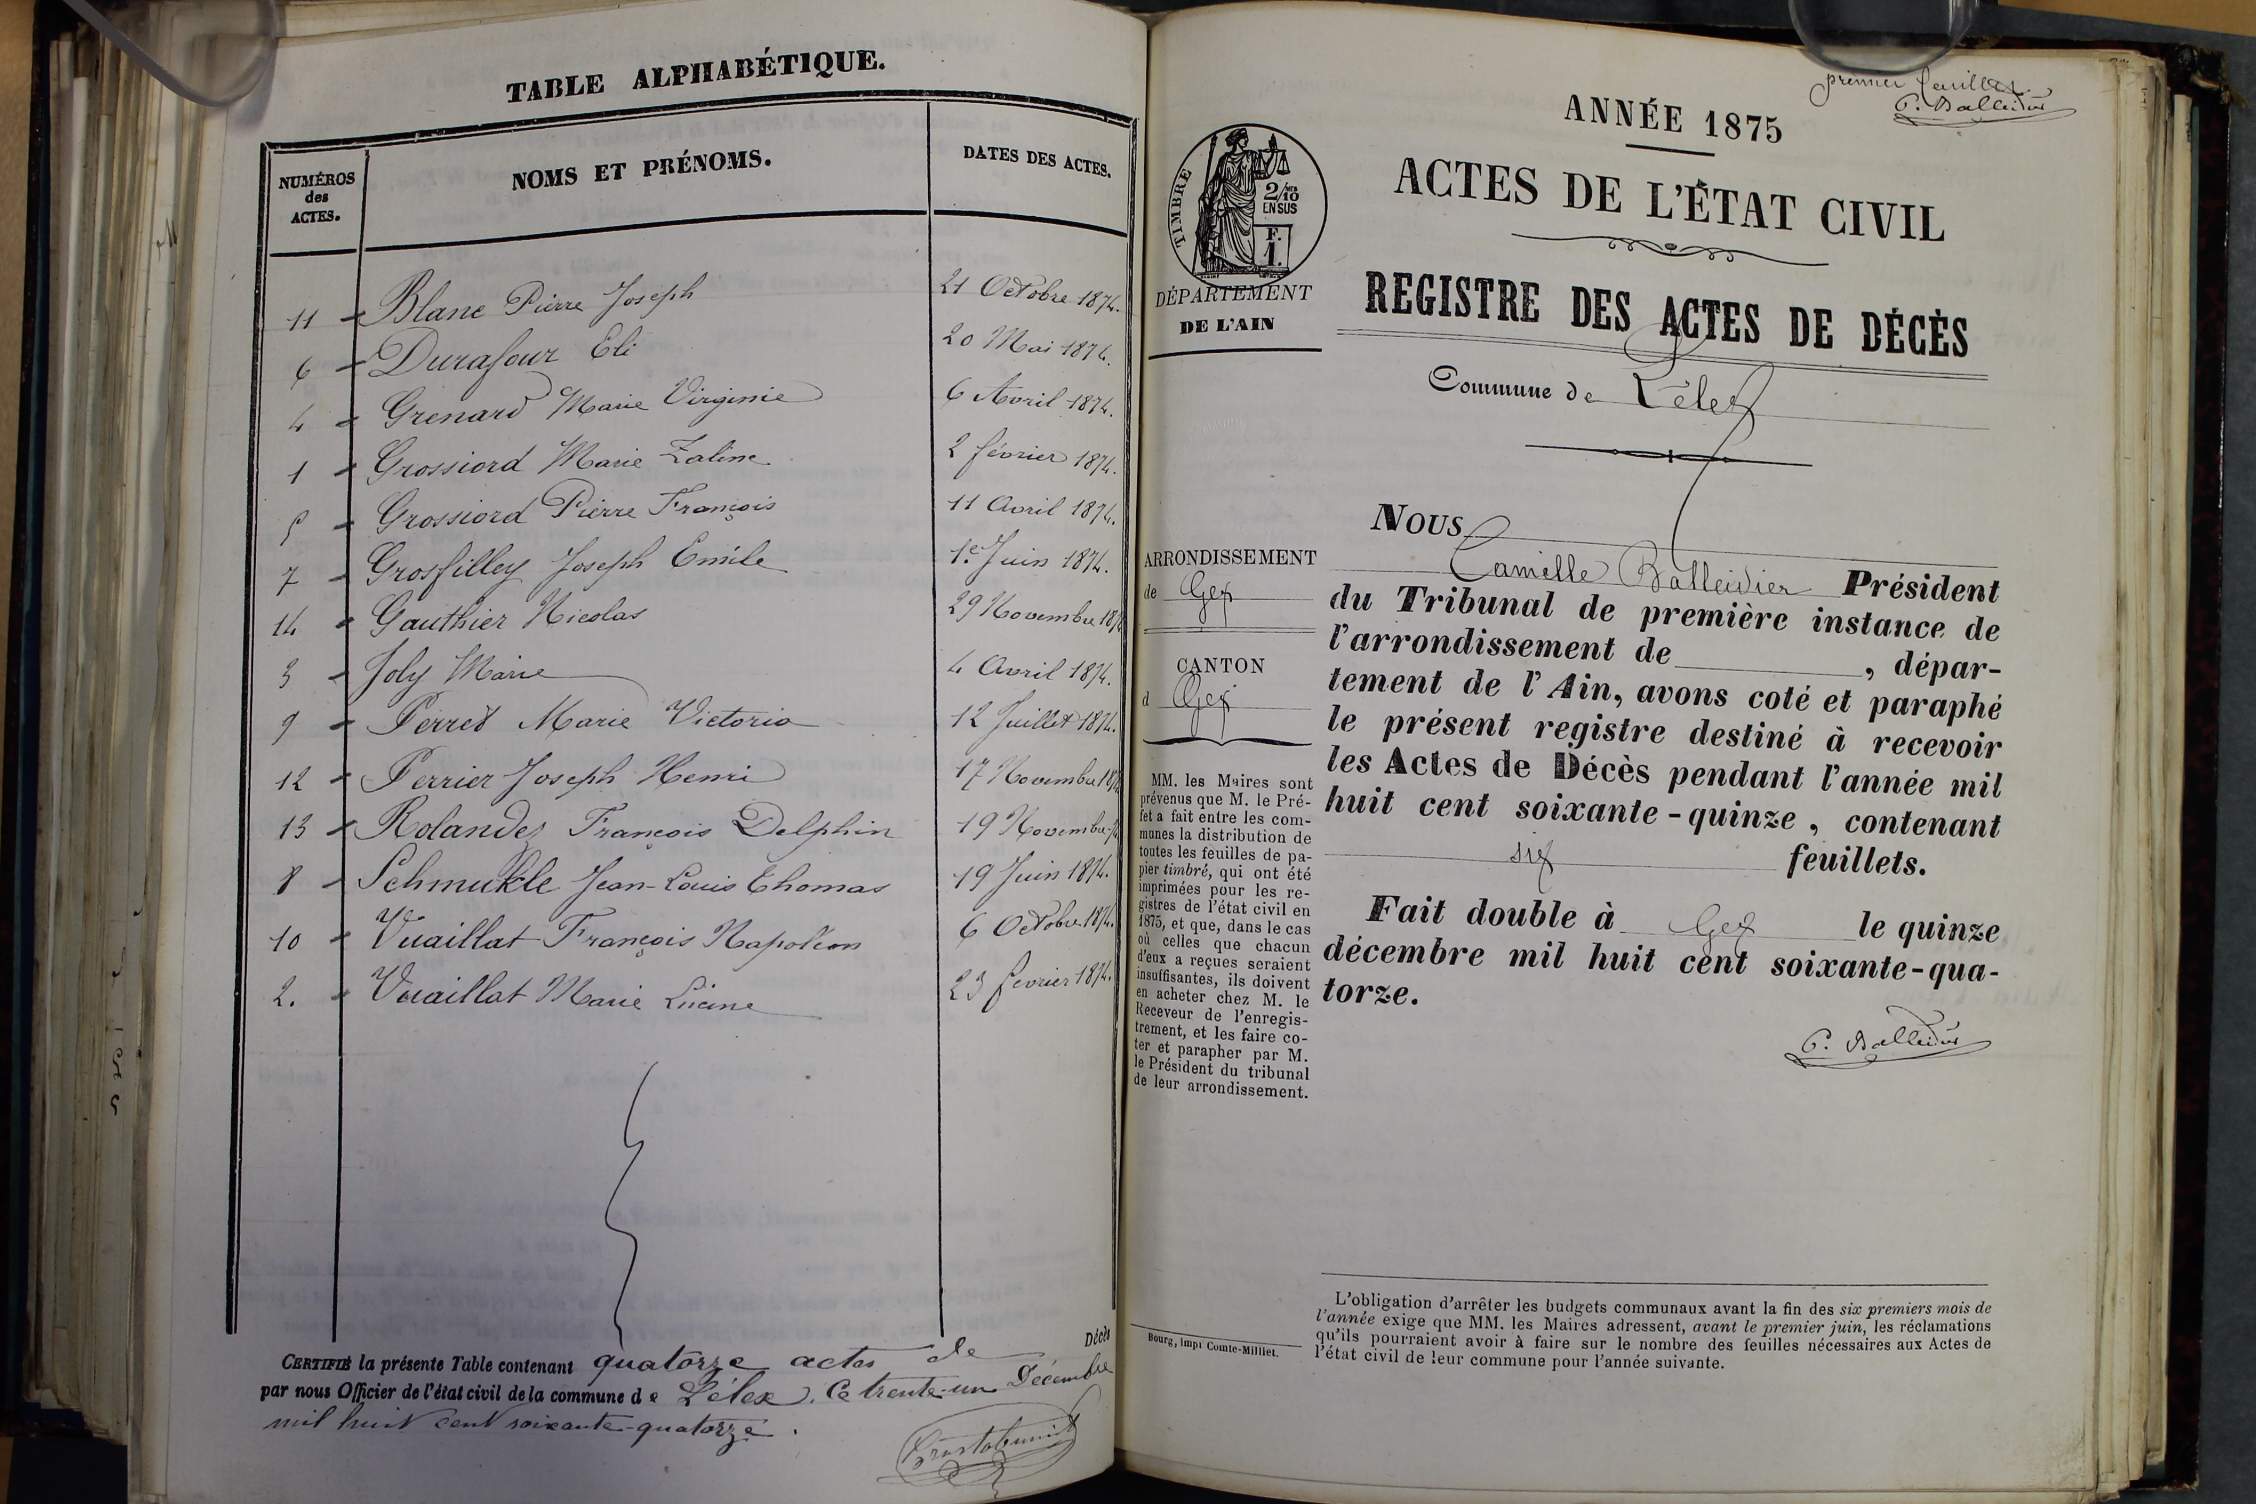 TABLE ALPHABÉTIQUE.
NUMÉROS des ACTES. NOMS ET PRÉNOMS. DATES DES ACTES.
11 - Blanc Pierre Joseph 21 Octobre 1874.
6 - Durafour Eli 20 Mai 1874.
4 - Grenard Marie Virginie 6 Avril 1874.
1 - Grossiord Marie Zaline 2 février 1874.
5 - Grossiord Pierre François 11 Avril 1874.
7 - Grosfilley Joseph Emile 1er Juin 1874.
14 - Gauthier Nicolas 29 Novembre 1874
3 - Joly Marie 4 Avril 1874.
9 - Perret Marie Victoria 12 Juillet 1874.
12 - Perrier Joseph Henri 17 Novembre 1874
13 - Rolandez François Delphin 19 Novembre
8 - Schmukle Jean-Louis Thomas 19 Juin 1874.
10 - Vuaillat François Napoléon 6 Octobre 1874.
2. - Vuaillat Marie Lucine 23 fevrier 1874.
CERTIFIÉ la présente Table contenant quatorze actes de Décès
par nous Officier de l'état civil de la commune de Lélex. Ce trente-un Décembre
mil huit cent soixante-quatorze.
premier feuillet.
C. Balleidier
ANNÉE 1875
ACTES DE L'ÉTAT CIVIL
REGISTRE DES ACTES DE DÉCÈS
Commune de Lélex
TIMBRE
2/10 EN SUS
F. 1.
DÉPARTEMENT
DE L'AIN
ARRONDISSEMENT
de Gex
CANTON
d Gex
MM. les Maires sont
prévenus que M. le Pré-
fet a fait entre les com-
munes la distribution de
toutes les feuilles de pa-
pier timbré, qui ont été
imprimées pour les re-
gistres de l'état civil en
1875, et que, dans le cas
où celles que chacun
d'eux a reçues seraient
insuffisantes, ils doivent
en acheter chez M. le
Receveur de l'enregis-
trement, et les faire co-
ter et parapher par M.
le Président du tribunal
de leur arrondissement.
Bourg, impr Comte-Milliet.
NOUS
Camille Balleidier Président
du Tribunal de première instance de
l'arrondissement de , dépar-
tement de l'Ain, avons coté et paraphé
le présent registre destiné à recevoir
les Actes de Décès pendant l'année mil
huit cent soixante-quinze, contenant
six feuillets.
Fait double à Gex le quinze
décembre mil huit cent soixante-qua-
torze.
C. Balleidier
L'obligation d'arrêter les budgets communaux avant la fin des six premiers mois de
l'année exige que MM. les Maires adressent, avant le premier juin, les réclamations
qu'ils pourraient avoir à faire sur le nombre des feuilles nécessaires aux Actes de
l'état civil de leur commune pour l'année suivante.